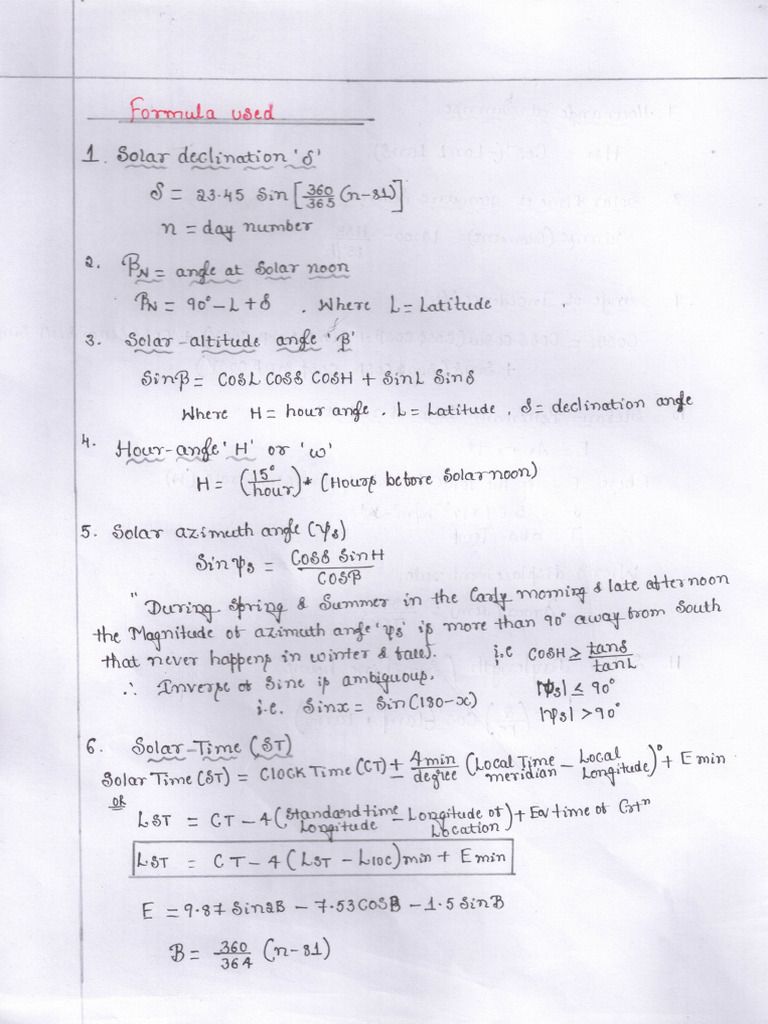 Formula used
1. Solar declination 'δ'
δ = 23.45 Sin [360/365 (n-81)]
n = day number
2. βN = angle at Solar noon
βN = 90° - L + δ . Where L = Latitude .
3. Solar-altitude angle 'β'
Sinβ = COSL COSδ COSH + SinL Sinδ
Where H = hour angle . L = Latitude , δ = declination angle
4. Hour-angle 'H' or 'ω'
H = (15°/hour) * (Hours before Solar noon)
5. Solar azimuth angle (ψs)
Sin ψs = COSδ SinH / COSβ
" During Spring & Summer in the Early morning & late afternoon
the Magnitude of azimuth angle 'ψs' is more than 90° away from South
that never happens in winter & fall). i.e COSH ≥ tanδ/tanL
∴ Inverse of Sine is ambiguous. |ψs| ≤ 90°
i.e. Sinx = Sin(180-x) |ψs| > 90°
6. Solar-Time (ST)
Solar Time (ST) = Clock Time (CT) ± 4min/degree (Local Time meridian - Local Longitude)° + E min
OR
LST = CT - 4 (Standard time Longitude - Longitude of Location) + Eq time of Crtⁿ
LST = CT - 4 (LST - Lloc) min + E min
E = 9.87 Sin2B - 7.53 COSB - 1.5 SinB
B = 360/364 (n-81)